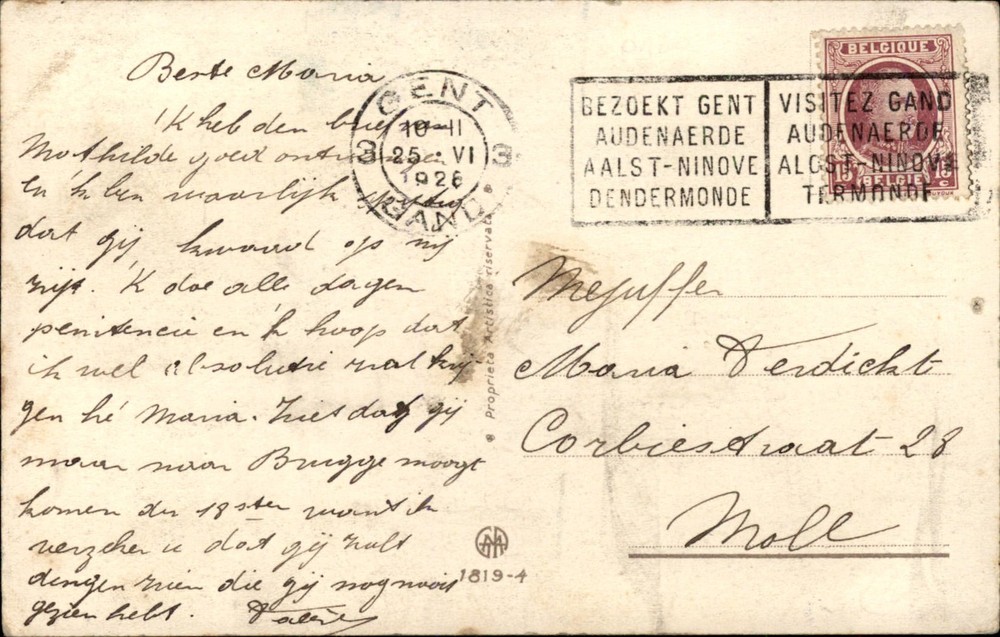 Beste Maria
'K heb den brief
Mathilde goed ontvangen
En 'k ben waarlijk
dat gij, kwaad op mij
zijt. 'K doe alle dagen
penitencie en 'k hoop dat
ik wel absolutie zal krij
gen hé Maria. Ziet dat gij
maar naar Brugge moogt
komen den 18sten want ik
verzeker u dat gij zult
dingen zien die gij nog nooit
gezien hebt.
GENT
10-11
3 25 VI 3
1926
GAND
BEZOEKT GENT
AUDENAERDE
AALST-NINOVE
DENDERMONDE
VISITEZ GAND
AUDENAERDE
ALOST-NINOVE
TERMONDE
BELGIQUE
15 BELGIË 15
c c
Proprietà Artistica riservata
Mejuffer
Maria Verdickt
Corbiestraat 28
Moll
1819-4